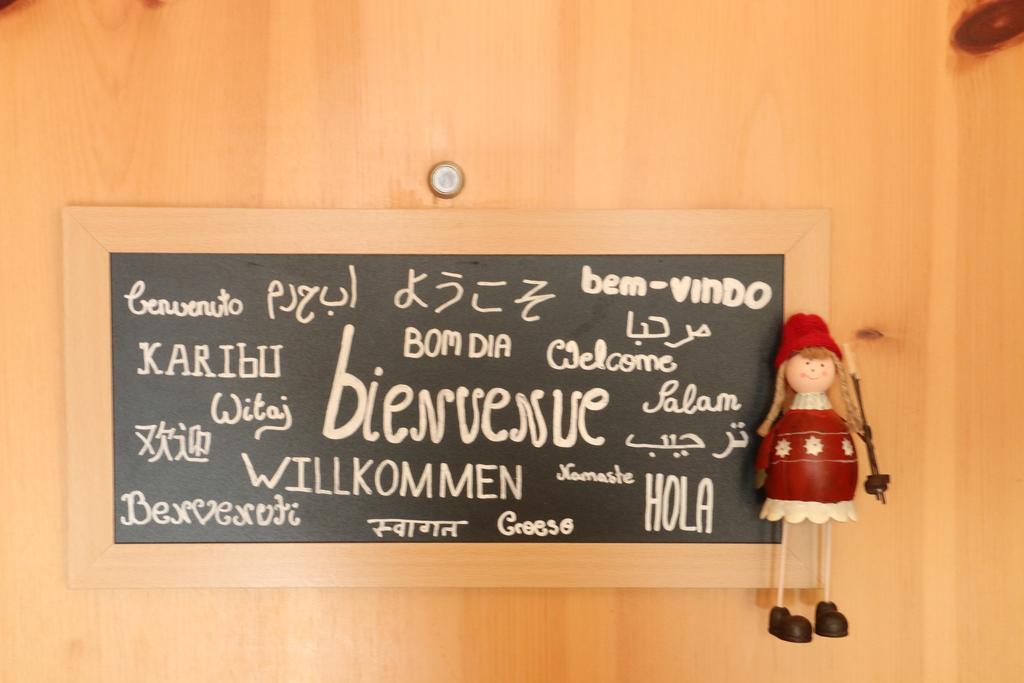 benvenuto
ようこそ
bem-vindo
مرحبا
KARIBU
BOM DIA
Welcome
Witaj
bienvenue
Salam
欢迎
تر حيب
WILLKOMMEN
Namaste
HOLA
Benvenuti
स्वागत
Croeso